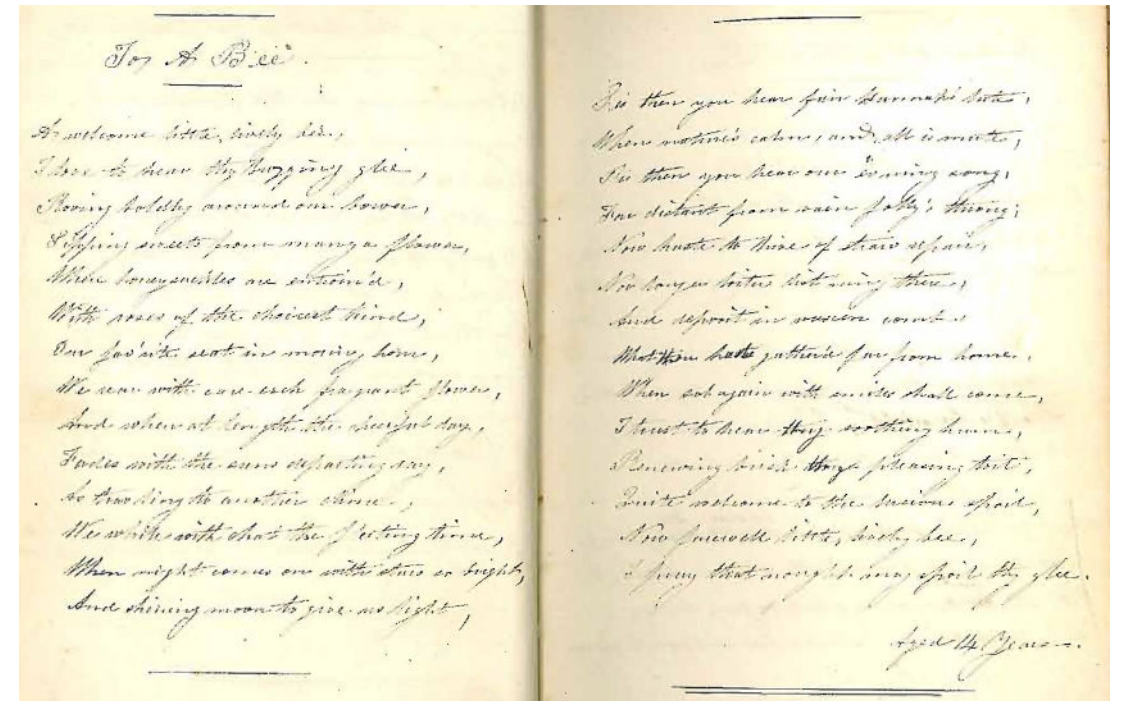 To, A Bee.
A welcome little, lively bee,
I love to hear thy buzzing glee,
Roving boldly around our bower,
Sipping sweets from many a flower,
When honeysuckles are entwin'd,
With roses of the choicest kind,
Our fav'rite seat in evening hour,
We rear with care each fragrant flower,
And when at length the cheerful day,
Fades with the suns departing ray,
As trav'ling to another clime,
We while with chat the fleeting time,
When night comes on with stars so bright,
And shining moon to give us light,
Tis then you hear fair Hannah's lute,
When nature's calm, and all is mute,
Tis then you hear our evening song,
Far distant from vain folly's throng;
Now haste to hive of straw repair,
Nor longer loiter ling'ring there,
And deposit in waxen comb
What thou hast gather'd far from home.
When sol again with smiles shall come,
I trust to hear thy soothing hum,
Renewing brisk thy pleasing toil,
Quite welcome to the luscious spoil,
Now farewell little, lively bee,
I pray that nought may spoil thy glee.
Aged 14 Years.